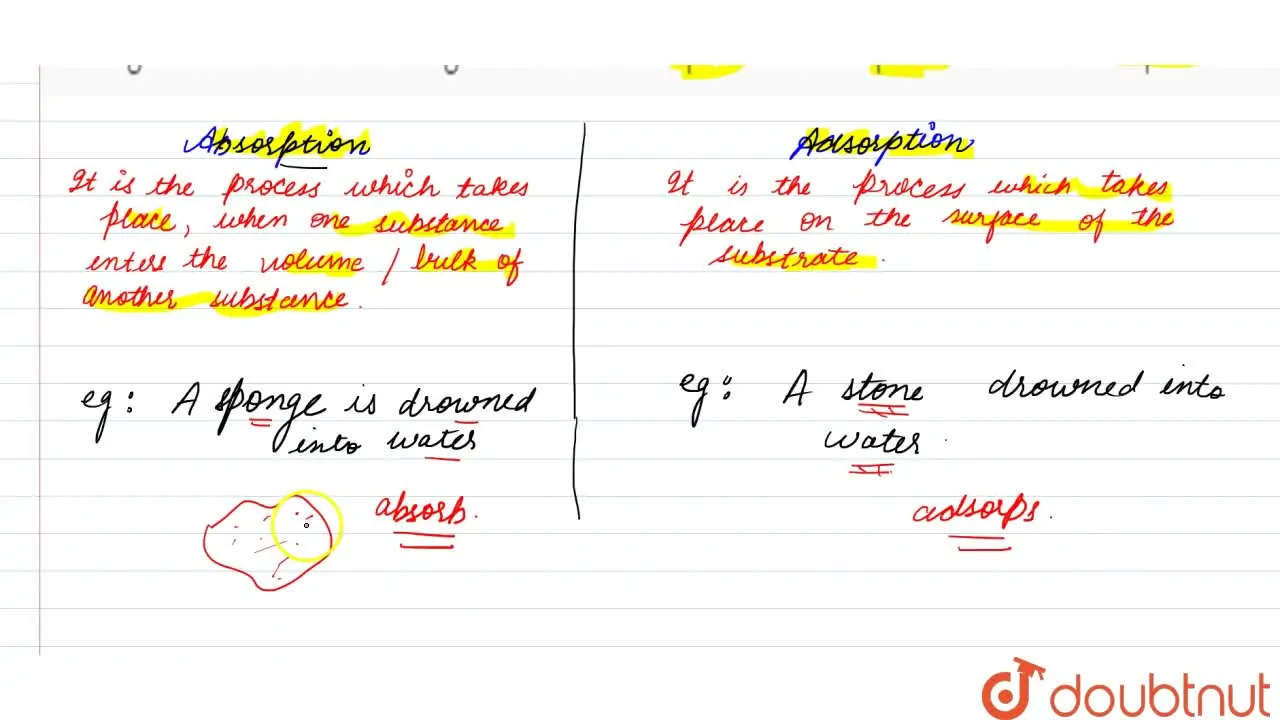 Absorption
It is the process which takes
place, when one substance
enters the volume / bulk of
another substance.
eg: A sponge is drowned
into water
absorb.
Adsorption
It is the process which takes
place on the surface of the
substrate.
eg: A stone drowned into
water.
adsorps.
doubtnut